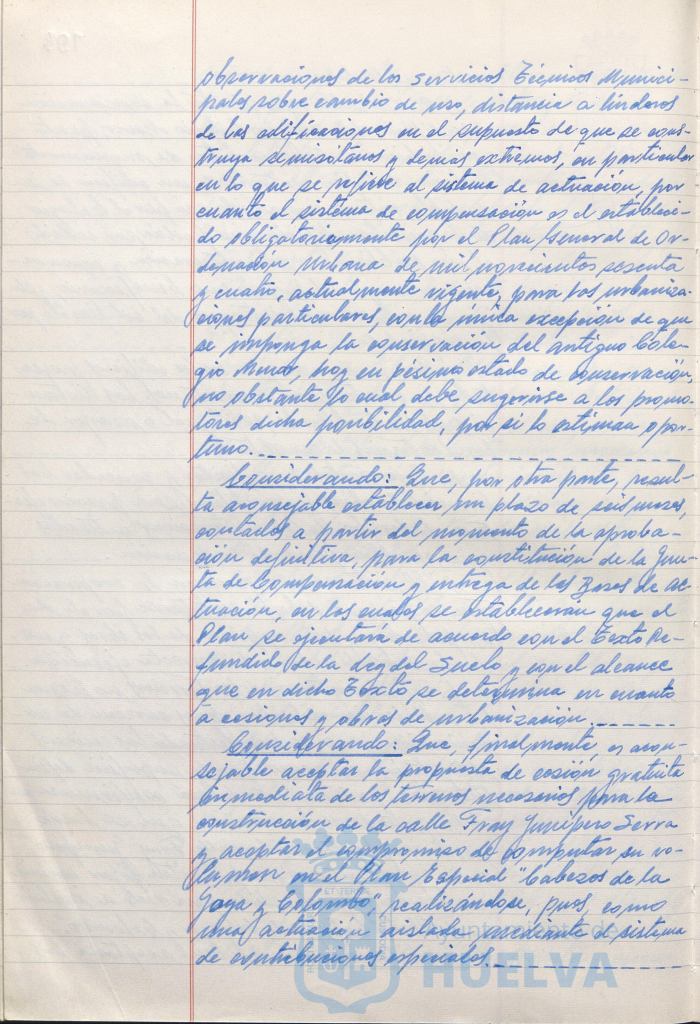 observaciones de los Servicios Técnicos Munici-
pales sobre cambio de uso, distancia a linderos
de las edificaciones en el supuesto de que se cons-
truya semisótanos y demás extremos, en particular
en lo que se refiere al sistema de actuación, por
cuanto el sistema de compensación es el estableci-
do obligatoriamente por el Plan General de Or-
denación Urbana de mil novecientos sesenta
y cuatro, actualmente vigente, para las urbaniza-
ciones particulares, con la única excepción de que
se imponga la conservación del antiguo Cole-
gio Menor, hoy en pésimo estado de conservación,
no obstante lo cual debe sugerirse a los promo-
tores dicha posibilidad, por si lo estiman opor-
tuno.
Considerando: Que, por otra parte, resul-
ta aconsejable establecer un plazo de seis meses,
contados a partir del momento de la aproba-
ción definitiva, para la constitución de la Jun-
ta de Compensación y entrega de las Bases de ac-
tuación, en las cuales se establecerán que el
Plan se ejecutará de acuerdo con el Texto Re-
fundido de la Ley del Suelo y con el alcance
que en dicho Texto se determina en cuanto
a cesiones y obras de urbanización.
Considerando: Que, finalmente, es acon-
sejable aceptar la propuesta de cesión gratuita
inmediata de los terrenos necesarios para la
construcción de la calle Fray Junípero Serra
y aceptar el compromiso de computar su vo-
lumen en el Plan Especial "Cabezos de la
Joya y Colombo", realizándose, pues, como
una actuación aislada mediante el sistema
de contribuciones especiales.
HUELVA